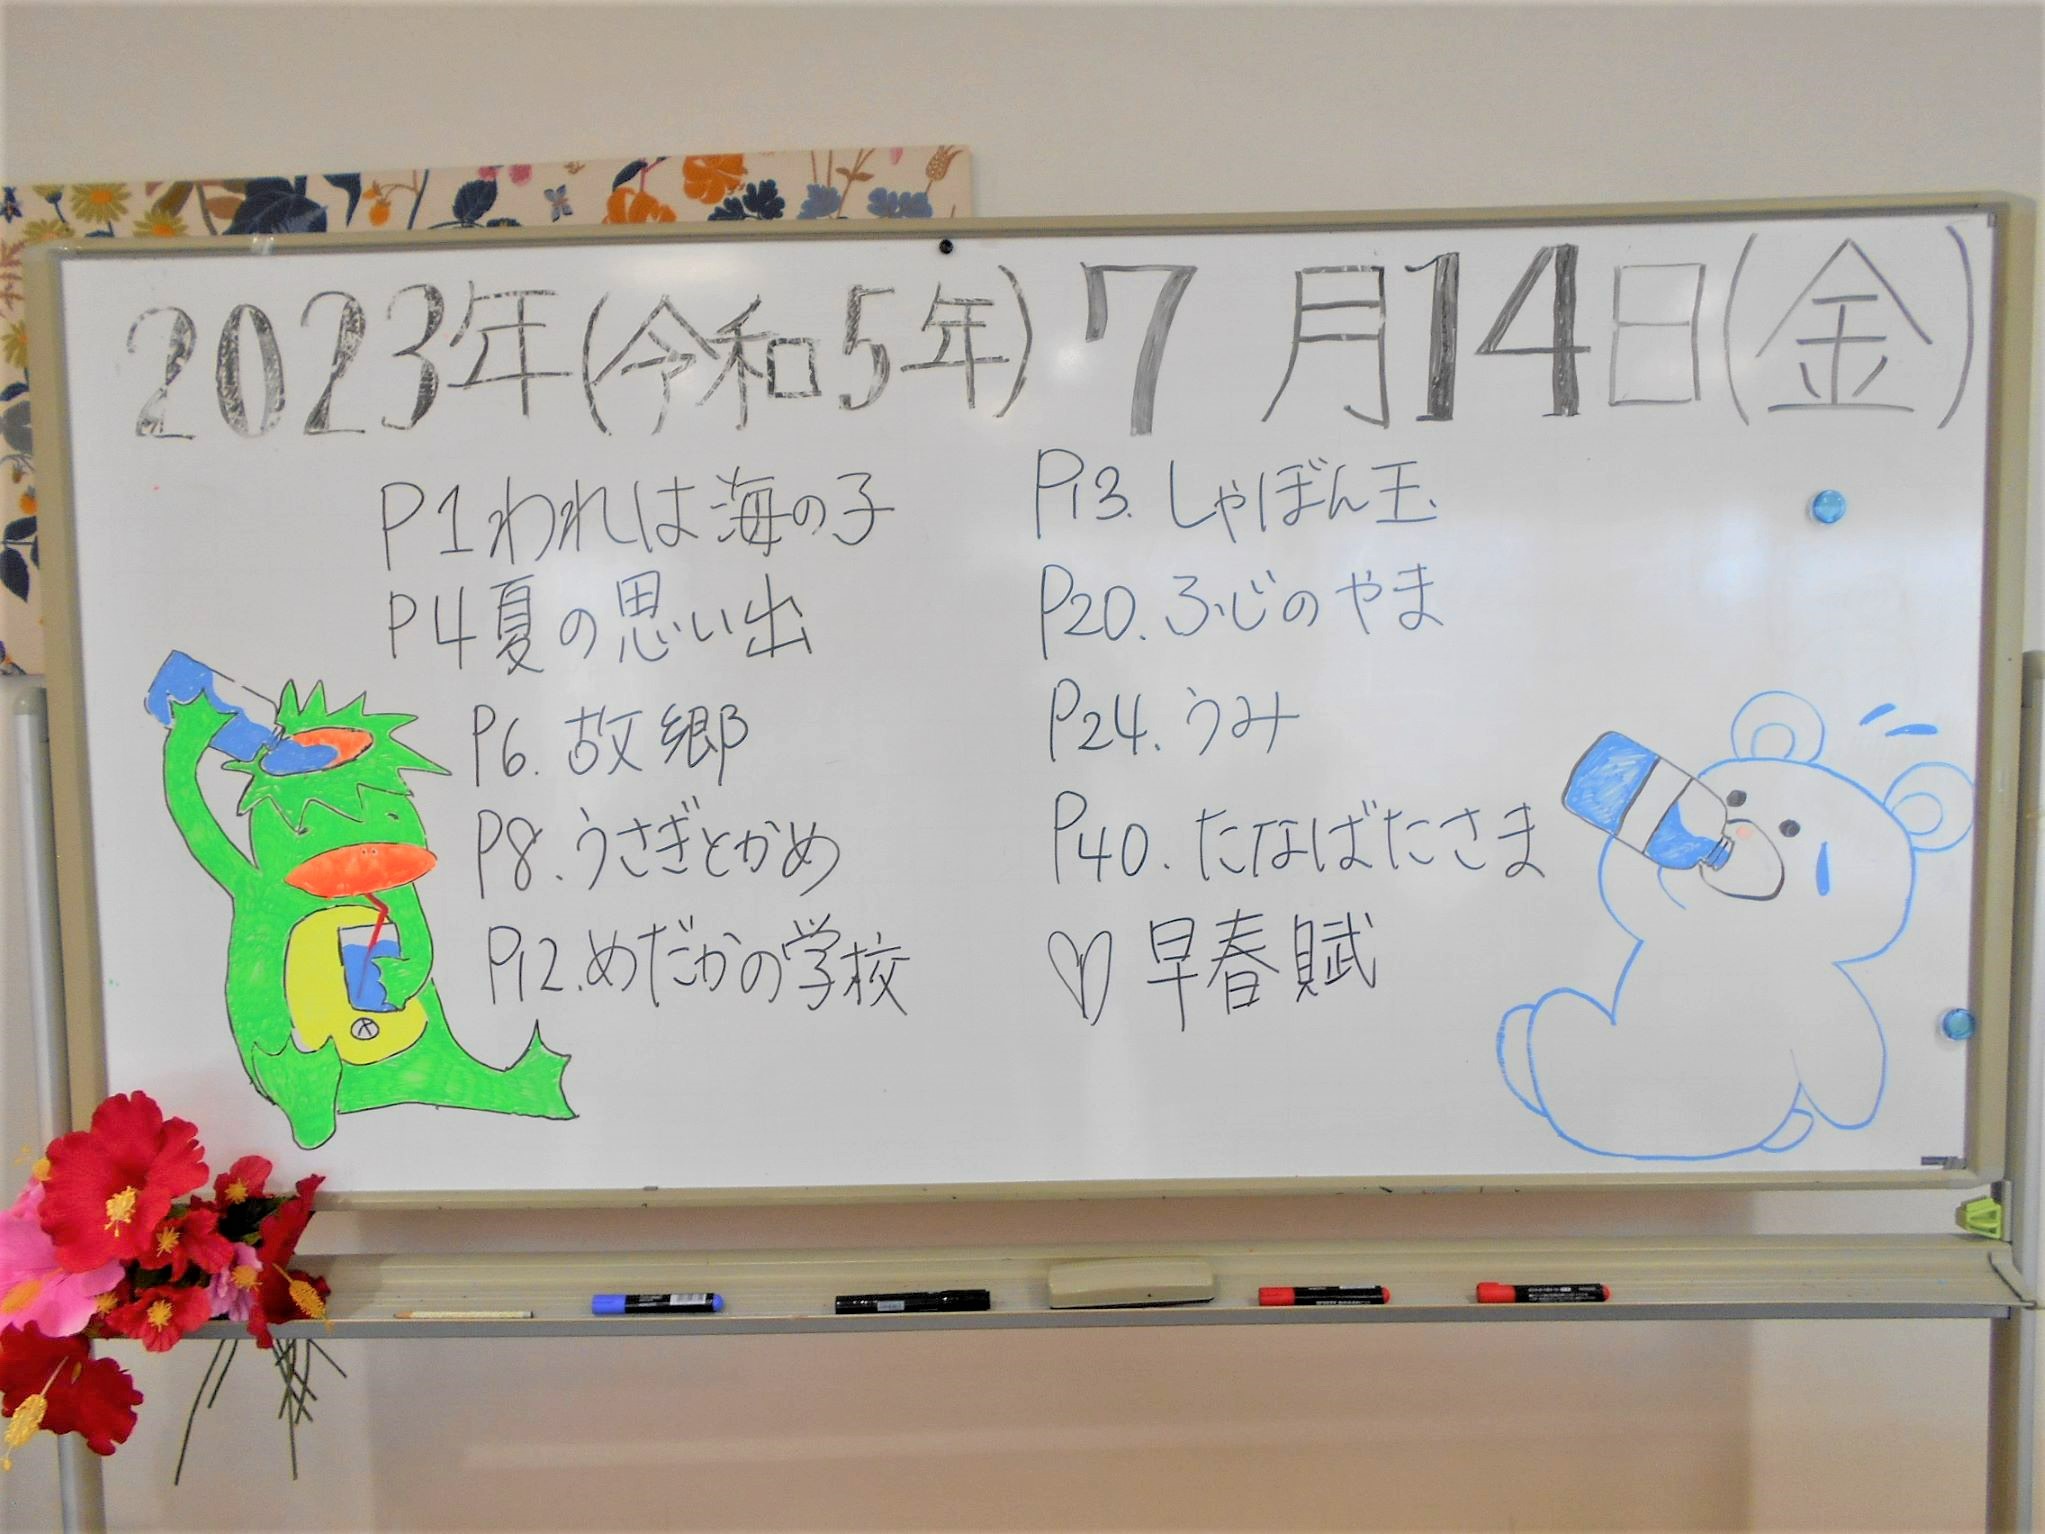 2023年(令和5年)7月14日(金)
P1われは海の子
P4夏の思い出
P6.故郷
P8.うさぎとかめ
P12.めだかの学校
P13.しゃぼん玉
P20.ふじのやま
P24.うみ
P40.たなばたさま
♡早春賦